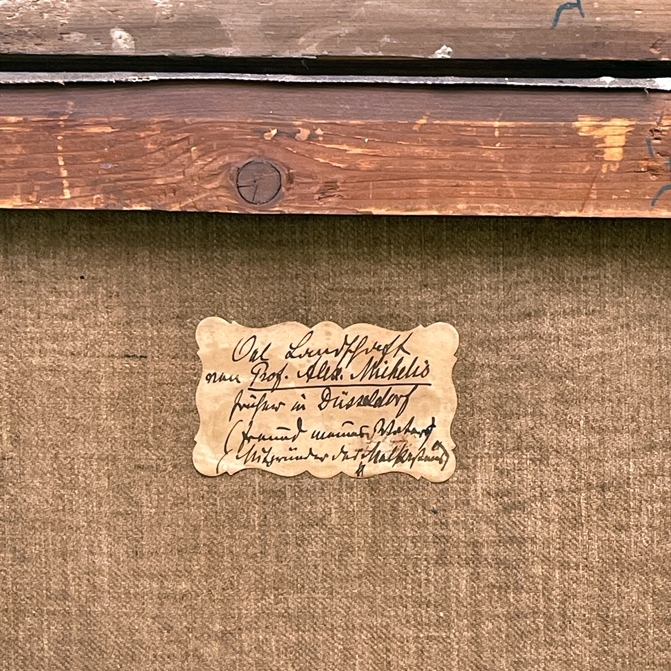 Oel Landschaft
von Prof. Alex. Michelis
früher in Düsseldorf
(Freund meines Vaters)
(Mitgründer des Malkastens)